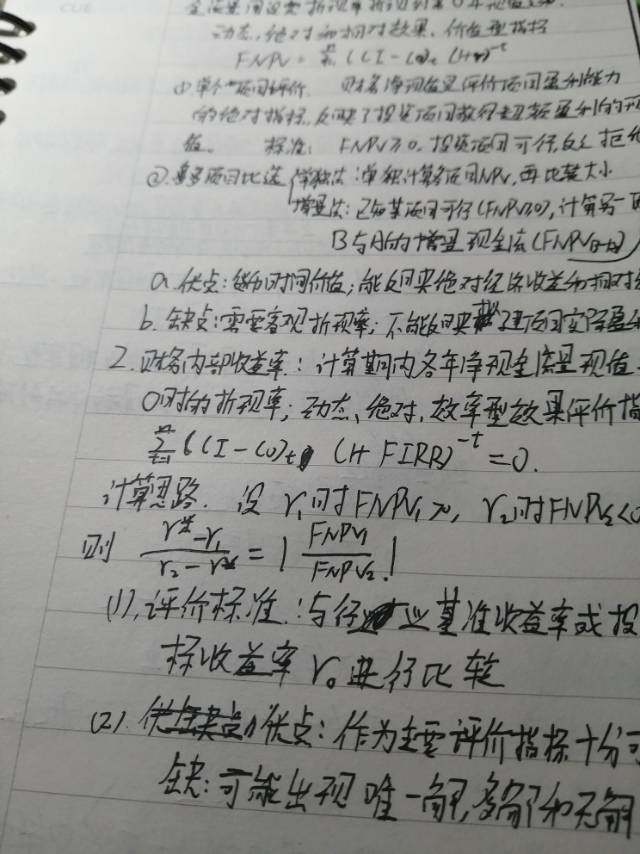 CUE
动态,绝对和相对效果,价值型指标
FNPV = Σ (CI-CO)t (1+r)^-t
①单个项目评价. 财务净现值是评价项目盈利能力
的绝对指标,反映了投资项目
值。 标准: FNPV≥0,投资项目可行,反之拒绝
②多项目比选 单独法:单独计算各项目NPV,再比较大小
增量法:已知某项目可行(FNPV≥0),计算另一项
B与A的增量现金流(FNPV B-A)
a.优点:货币时间价值;能反映绝对经济收益和相对
b.缺点:需要客观折现率;不能反映项目实际盈利
2.财务内部收益率:计算期内各年净现金流量现值
0时的折现率;动态、绝对,效率型效果评价指
Σ t=1 (CI-CO)t (1+FIRR)^-t = 0.
计算思路. 设 r₁时FNPV₁>0, r₂时FNPV₂<0
则 (r*-r₁)/(r₂-r*) = |FNPV₁/FNPV₂|
(1).评价标准:与行业基准收益率或投
标收益率 r₀ 进行比较
(2). 优点:作为主要评价指标十分可
缺:可能出现唯一解,多解和无解